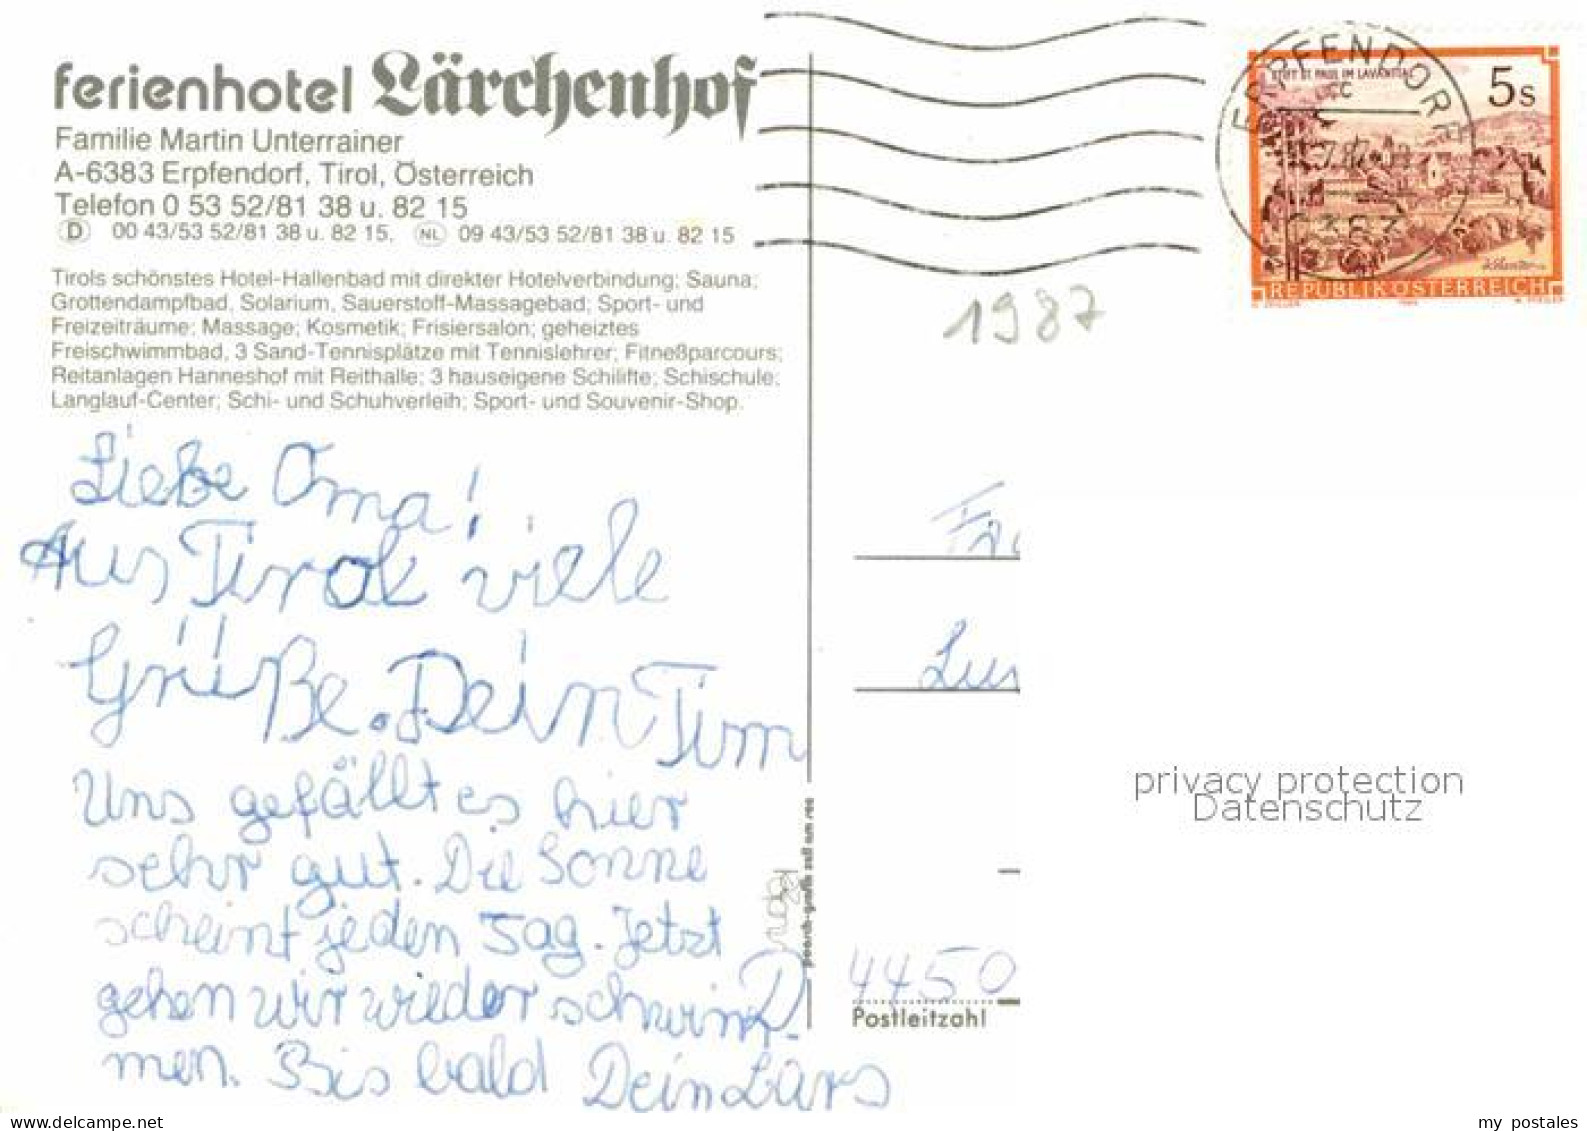 ferienhotel Lärchenhof
Familie Martin Unterrainer
A-6383 Erpfendorf, Tirol, Österreich
Telefon 0 53 52/81 38 u. 82 15
D 00 43/53 52/81 38 u. 82 15, NL 09 43/53 52/81 38 u. 82 15
Tirols schönstes Hotel-Hallenbad mit direkter Hotelverbindung; Sauna;
Grottendampfbad, Solarium, Sauerstoff-Massagebad; Sport- und
Freizeiträume; Massage; Kosmetik; Frisiersalon; geheiztes
Freischwimmbad, 3 Sand-Tennisplätze mit Tennislehrer; Fitneßparcours;
Reitanlagen Hanneshof mit Reithalle; 3 hauseigene Schilifte; Schischule;
Langlauf-Center; Schi- und Schuhverleih; Sport- und Souvenir-Shop.
Liebe Oma!
Aus Tirol viele
Grüße. Dein Tim
Uns gefällt es hier
sehr gut. Die Sonne
scheint jeden Tag. Jetzt
gehen wir wieder schwim
men. Bis bald Dein Lars
STIFT ST. PAUL IM LAVANTTAL
5s
REPUBLIK ÖSTERREICH
ERPFENDORF
6383
1987
4450
Postleitzahl
privacy protection
Datenschutz
my postales